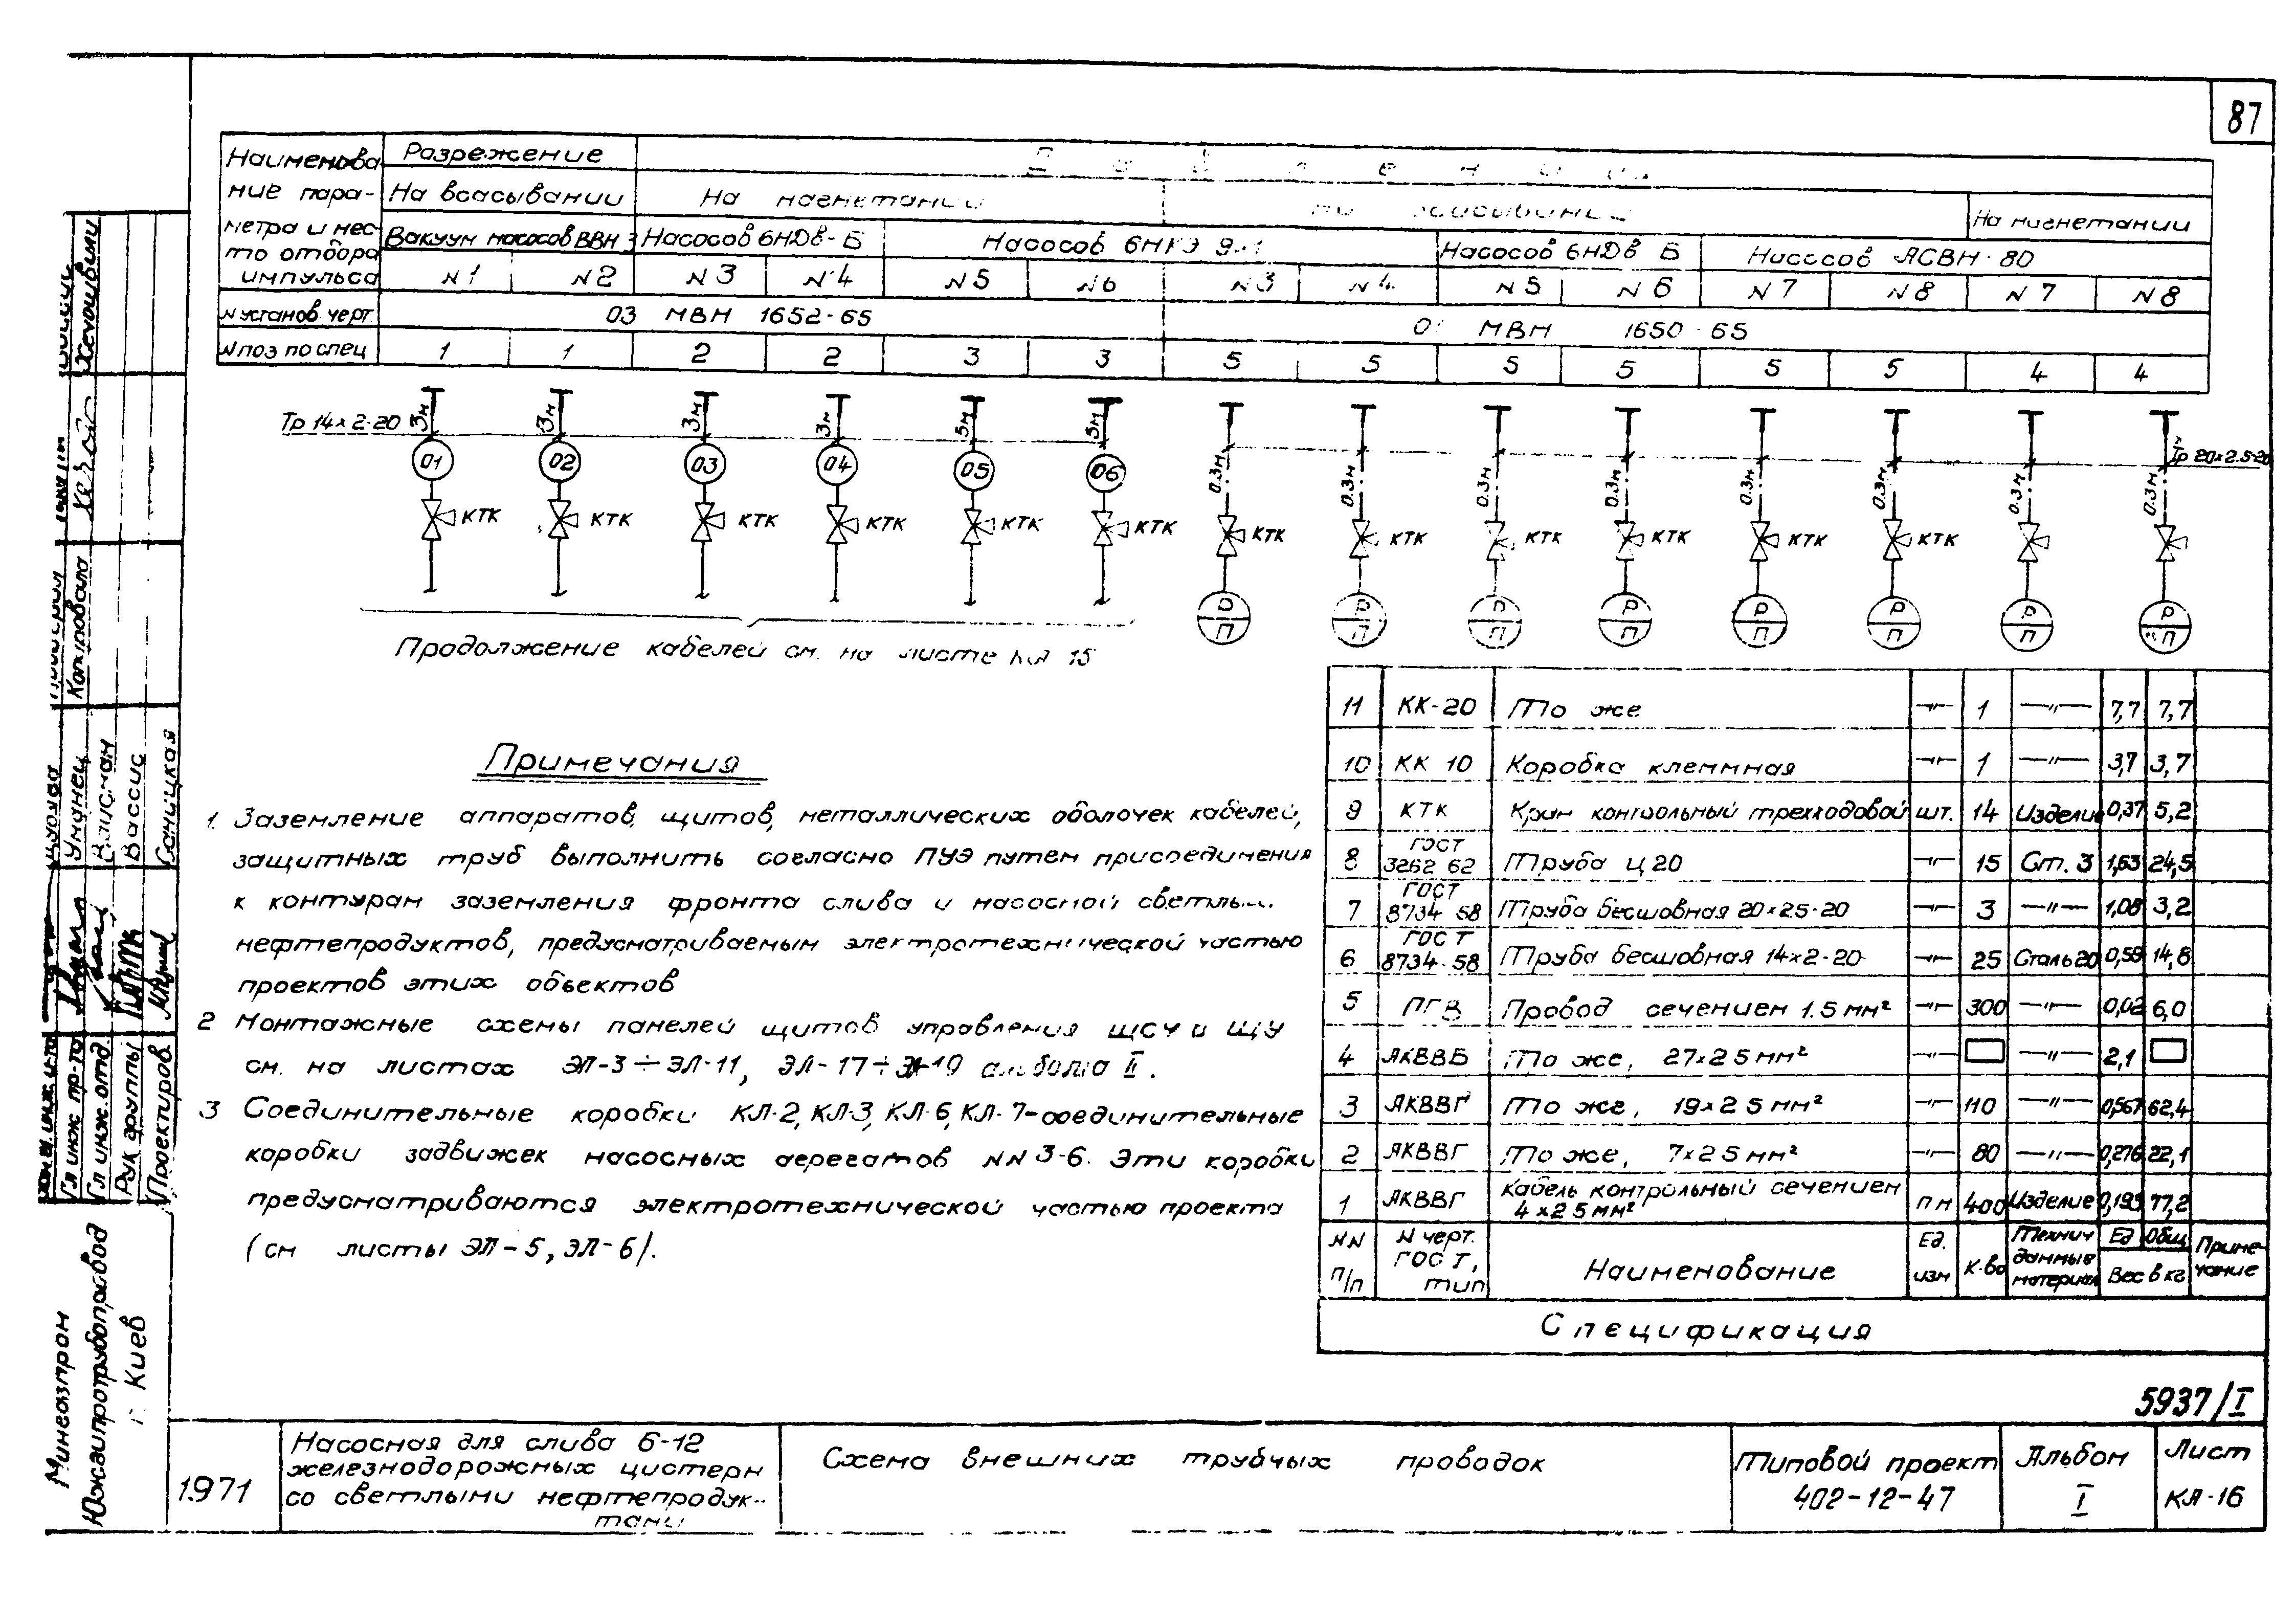 87
Наименова Разрежение
ние пара- На всасывании На нагнетании
метра и мес Вакуум насосов ВВН 3 Насосов 6НДв-Б Насосов 6НГЭ 9х1 Насосов 6НДв Б Насосов АСВН-80 На нагнетании
то отбора
импульса N1 N2 N3 N4 N5 N6 N3 N4 N5 N6 N7 N8 N7 N8
N установ. черт. 03 МВН 1652-65 МВН 1650-65
N поз по спец 1 1 2 2 3 3 5 5 5 5 5 5 4 4
Тр 14×2-20 3м 3м 3м 3м 5м 5м
01 02 03 04 05 06
0.3м 0.3м 0.3м 0.3м 0.3м 0.3м 0.3м 0.3м Тр 20×2.5-20
КТК КТК КТК КТК КТК КТК КТК КТК КТК КТК КТК КТК
Р Р Р Р Р Р Р Р
П П П П П П П П
Продолжение кабелей см. на листе КА 15
Примечания
1. Заземление аппаратов, щитов, металлических оболочек кабелей,
защитных труб выполнить согласно ПУЭ путем присоединения
к контурам заземления фронта слива и насосной
нефтепродуктов, предусматриваемым электротехнической частью
проектов этих объектов
2 Монтажные схемы панелей щитов управления ЩСУ и ЩУ
см. на листах ЭЛ-3÷ЭЛ-11, ЭЛ-17÷ЭЛ-19 альбома II.
3 Соединительные коробки КЛ-2, КЛ-3, КЛ-6, КЛ-7-соединительные
коробки задвижек насосных агрегатов NN 3-6. Эти коробки
предусматриваются электротехнической частью проекта
(см листы ЭЛ-5, ЭЛ-6).
11 КК-20 То же —"— 1 —"— 7,7 7,7
10 КК 10 Коробка клеммная —"— 1 —"— 3,7 3,7
9 КТК Кран контрольный трехходовой шт. 14 Изделие 0,37 5,2
8 ГОСТ 3262 62 Труба Ц 20 —"— 15 Ст. 3 1,63 24,5
7 ГОСТ 8734 58 Труба бесшовная 20×2.5-20 —"— 3 —"— 1,08 3,2
6 ГОСТ 8734-58 Труба бесшовная 14×2-20 —"— 25 Сталь 20 0,59 14,8
5 ПГВ Провод сечением 1.5 мм² —"— 300 —"— 0,02 6,0
4 АКВВБ То же, 27×2 5 мм² —"— —"— 2,1
3 АКВВГ То же, 19×2 5 мм² —"— 110 —"— 0,567 62,4
2 АКВВГ То же, 7×2 5 мм² —"— 80 —"— 0,276 22,1
1 АКВВГ Кабель контрольный сечением 4×2 5 мм² п м 400 Изделие 0,193 77,2
NN п/п N черт. ГОСТ, тип Наименование Ед. изм К-во Технич данные материал Ед Общ Вес в кг Приме-чание
Спецификация
5937/I
1971
Насосная для слива 6-12
железнодорожных цистерн
со светлыми нефтепродук-
тами
Схема внешних трубных проводок
Типовой проект
402-12-47
Альбом
I
Лист
КА-16
Миннеазпром
Южгипротрубопровод
г. Киев
Гл инж пр-та Унанец
Гл инж. отд.
Рук группы Вассис
Проектиров. Саницкая
Коновалова